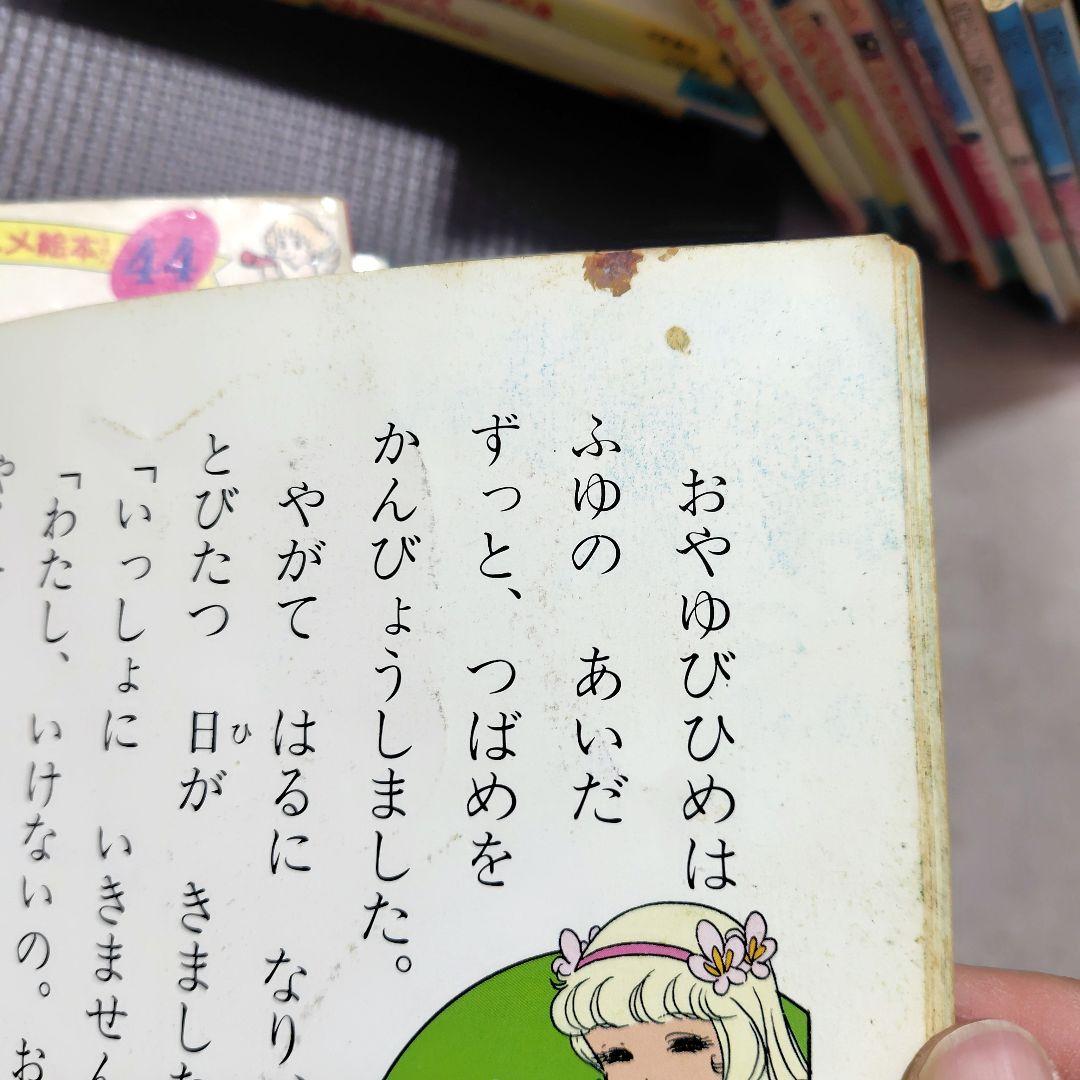 おやゆびひめは
ふゆの あいだ
ずっと、 つばめを
かんびょうしました。
やがて はるに なり、
とびたつ 日が きました
ひ
「いっしょに いきません
「わたし、 いけないの。 お
メ絵本
44